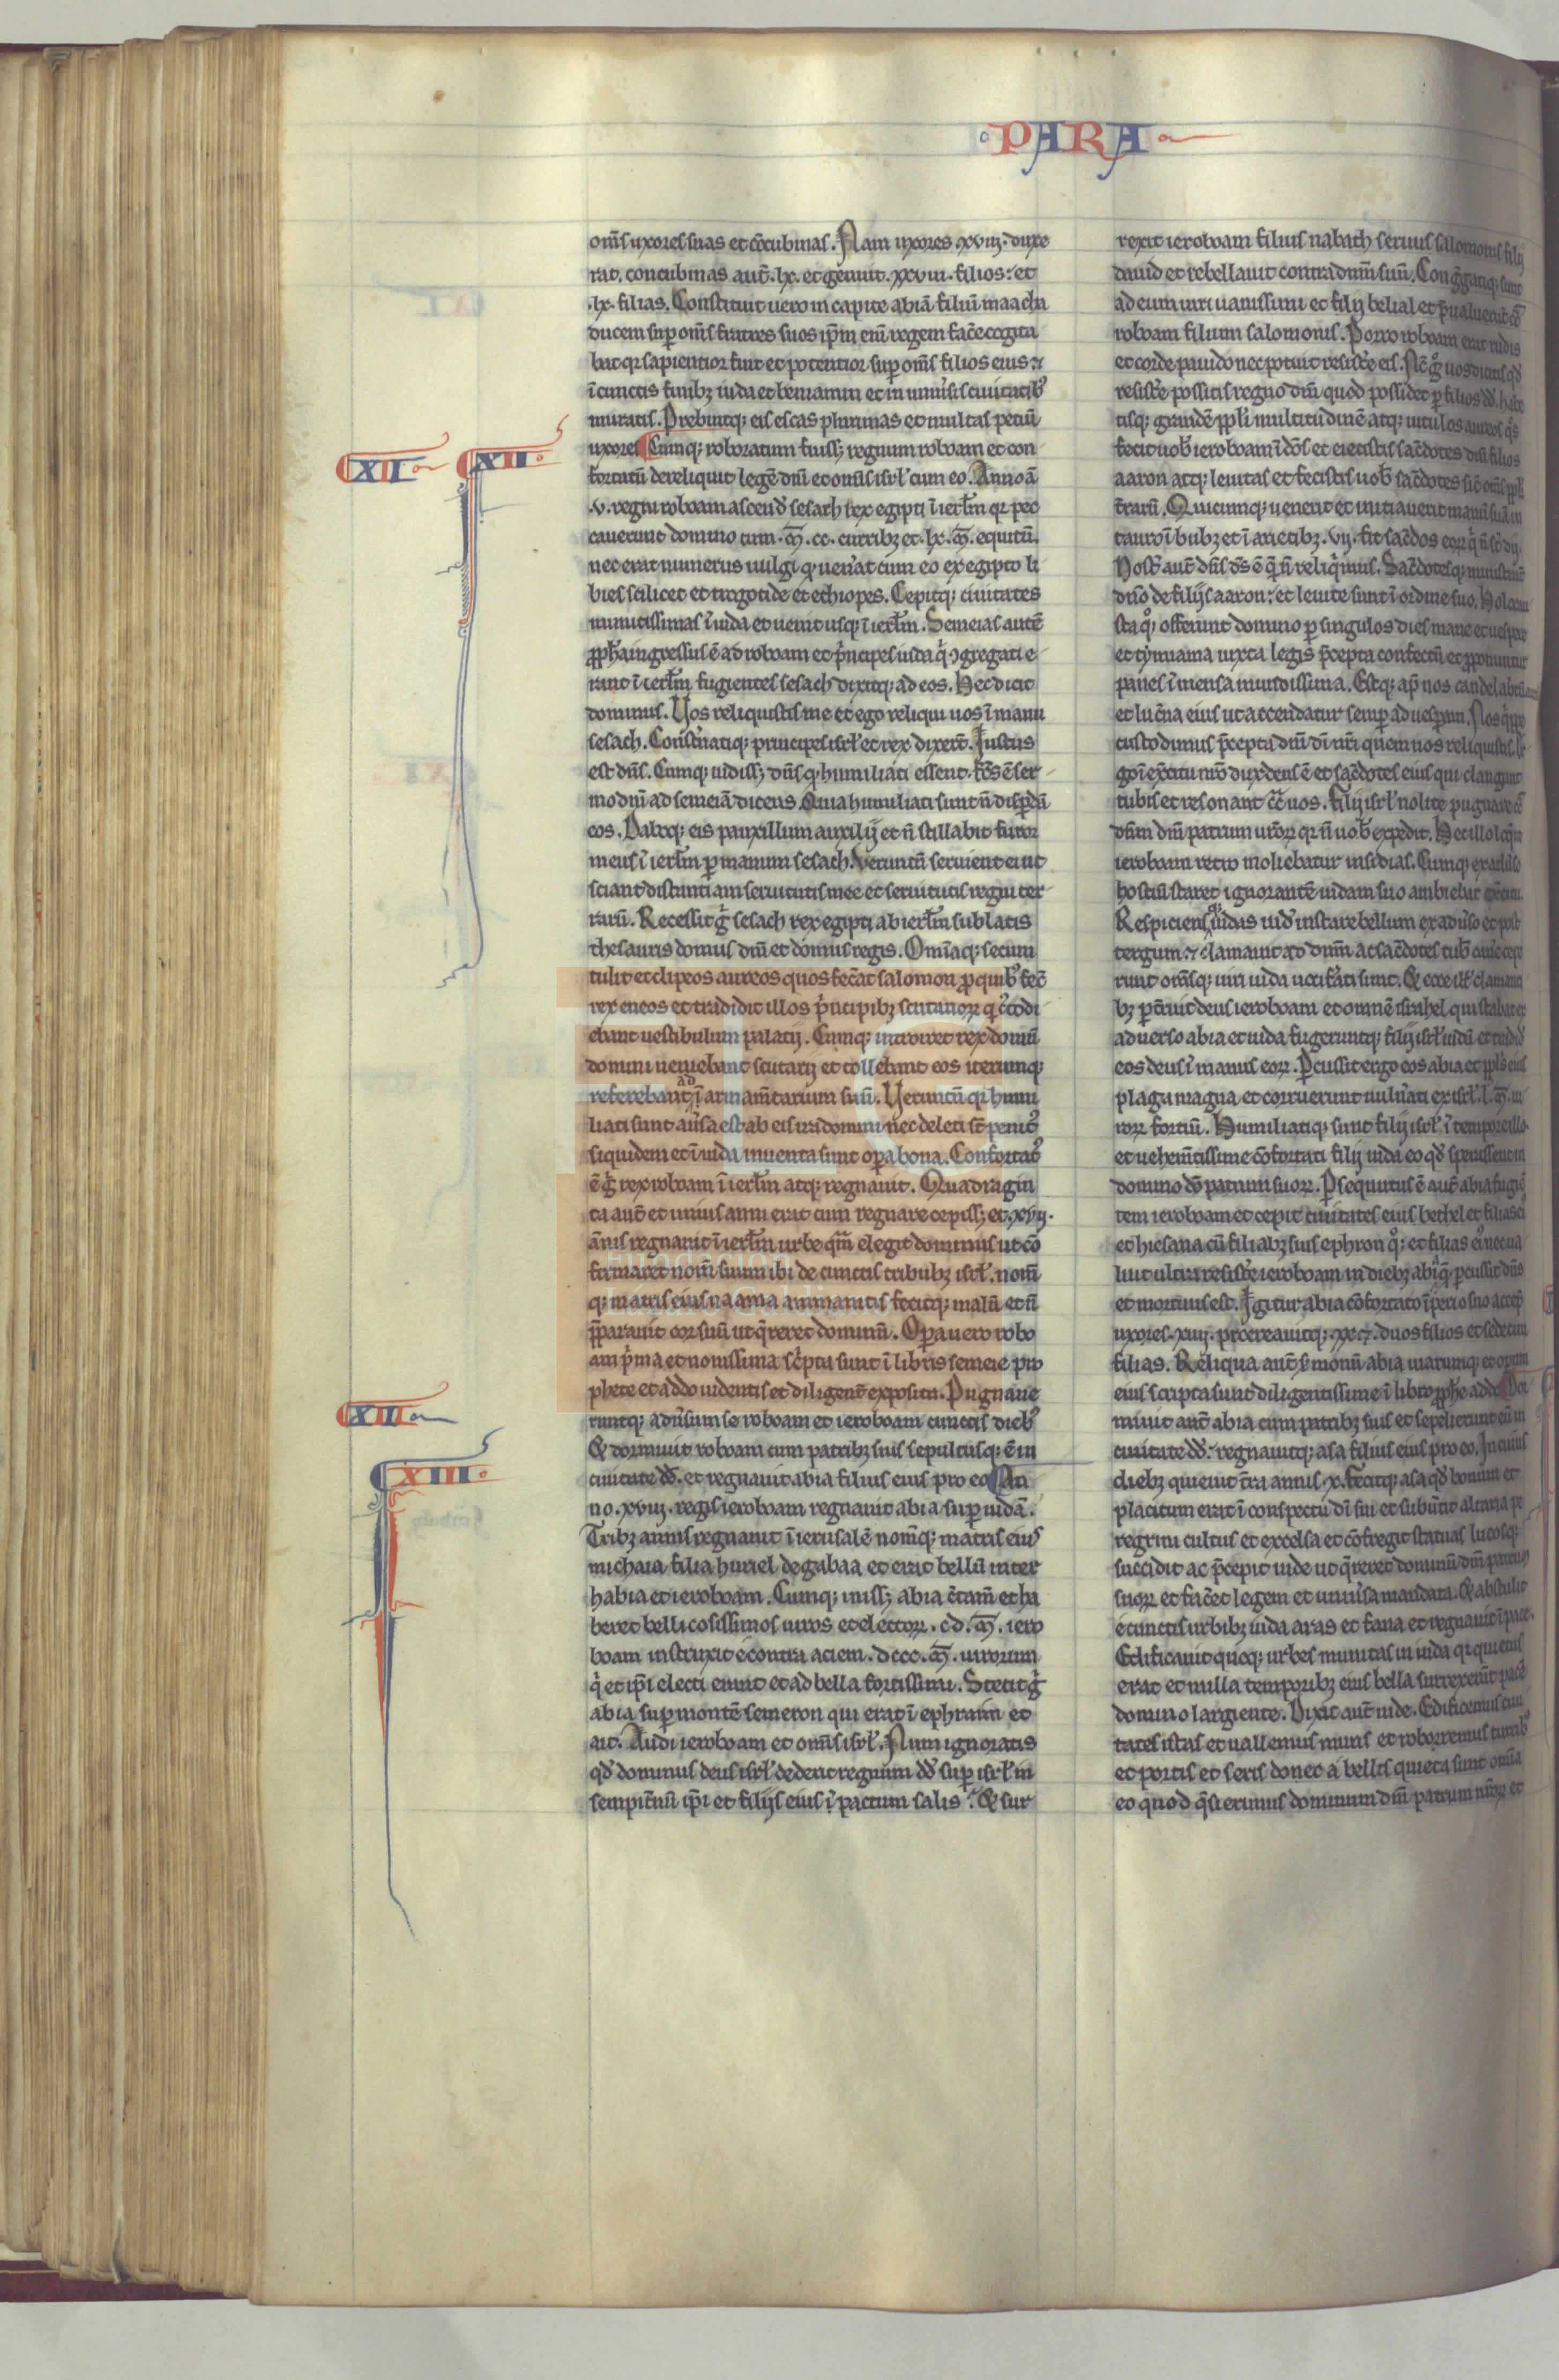 PARA
omīs uxores suas et cōcubinas. Nam uxores .xviij. duxe
rat. concubinas aut̄ .lx. et genuit .xxviii. filios: et
.lx. filias. Constituit uero in capite abiā filiū maacha
ducem sup omīs fratres suos ip̄m enī regem fac̄e cogita
bat qr sapientior fuit et potentior sup omīs filios eius ⁊
ī cunctis finibꝫ iuda et beniamin et in uniu̓sis ciuitatibꝰ
muratis. Prebuitqꝫ eis escas plurimas et multas petiuit
XII
XII
uxores Cumqꝫ roboratum fuissꝫ regnum roboam et con
fortatū dereliquit legē dn̄i et omīs isrl̄ cum eo. Anno ā
.v. regni roboam ascend̄ sesach rex egipti ī ierl̄m qr pec
cauerunt domino cum .ꝳ. cc. curribꝫ et .lx. ꝳ. equitū.
nec erat numerus uulgi qd̄ uen̓at cum eo ex egipto li
bies scilicet et trogotide et ethiopes. Cepitqꝫ ciuitates
munitissimas ī iuda et uenit usqꝫ ī ierl̄m. Semeias autē
ꝓph̄a ingressus ē ad roboam et p̓ncipes iuda q̓ ꝯgregati e
rant ī ierl̄m fugientes sesach dixitqꝫ ad eos. Hec dicit
dominus. Vos reliquistis me et ego reliqui uos ī manu
sesach. Const̓natiqꝫ principes isrl̄ et rex dixer̄t. Iustus
est dn̄s. Cumqꝫ uidissꝫ dn̄s qd̄ humiliati essent. fc̄s ē ser
mo dn̄i ad semeiā dicens. Quia humiliati sunt n̄ disp̄dā
eos. Daboqꝫ eis pauxillum auxilij et n̄ stillabit furor
meus ī ierl̄m p manum sesach. Verumtn̄ seruient ei ut
sciant distantiam seruitutis mee et seruitutis regni ter
rarū. Recessit g̓ sesach rex egipti ab ierl̄m sublatis
thesauris domus dn̄i et domus regis. Omīaqꝫ secum
tulit et clipeos aureos quos fec̄at salomon ꝓ quibꝰ fec̄
rex eneos et tradidit illos p̓ncipibꝫ scutarioꝝ q̓ c̄todi
ebant uestibulum palatij. Cumqꝫ introiret rex domū
domini ueniebant scutarij et tollebant eos iterumqꝫ
ad
referebant ī armam̄tarium suū. Verumtn̄ qr humi
liati sunt au̓sa est ab eis ira domini nec deleti st̄ penitꝰ
siquidem et ī iuda inuenta sunt opa bona. Confortatꝰ
ē g̓ rex roboam ī ierl̄m atqꝫ regnauit. Quadragin
ta aut̄ et unius anni erat cum regnare cepissꝫ et .xvij.
ānis regnauit ī ierl̄m urbe qm̄ elegit dominus ut cō
firmaret nom̄ suum ibi de cunctis tribubꝫ isrl̄. nom̄
qꝫ matris eius naama ammanitis fecitqꝫ malū et n̄
p̄parauit cor suū ut q̄reret dominū. Opa uero robo
am p̓ma et nouissima sc̓pta sunt ī libris semeie pro
phete et addo uidentis et diligent̄ exposita. Pugnaue
XIII
runtqꝫ adu̓sum se roboam et ieroboam cunctis diebꝰ
Et dormiuit roboam cum patribꝫ suis sepultusqꝫ ē in
XIII
ciuitate dd̄. et regnauit abia filius eius pro eo An
no .xviij. regis ieroboam regnauit abia sup iudā.
Tribꝫ annis regnauit ī ierusalē nom̄qꝫ matris eius
michaia filia huriel de gabaa et erat bellū inter
habia et ieroboam. Cumqꝫ inissꝫ abia c̄tam̄ et ha
beret bellicosissimos uiros et electoꝝ .cd. ꝳ. iero
boam instruxit econtra aciem .dccc. ꝳ. uirorum
q̓ et ip̄i electi erant et ad bella fortissimi. Stetit g̓
abia sup montē semeron qui erat ī ephraim et
ait. Audi ieroboam et omīs isrl̄. Num ignoratis
qd̄ dominus deus isrl̄ dederit regnum dd̄ sup isrl̄ in
sempit̄nū ip̄i et filijs eius ī pactum salis. Et sur
rexit ieroboam filius nabath seruus salomonis filij
dauid et rebellauit contra dn̄m suū. Cong̓gatiqꝫ sunt
ad eum uiri uanissimi et filij belial et p̄ualuerūt cō
roboam filium salomonis. Porro roboam erat rudis
et corde pauido nec potuit resist̄e eis. Nc̄ g̓ uos dicitis qd̄
resist̄e possitis regno dn̄i quod possidet p filios dd̄. habe
tisqꝫ grandē ppl̄i multitudinē atqꝫ uitulos aureos q̄s
fecit uob̄ ieroboam ī dōs et eiecistis sac̄dotes dn̄i filios
aaron atqꝫ leuitas et fecistis uob̄ sac̄dotes sic̄ omīs ppl̄i
t̄rarū. Quicumqꝫ uenerit et initiauerit manū suā in
tauro ī bubꝫ et ī arietibꝫ .vij. fit sac̄dos eoꝝ q̓ n̄ st̄ dij.
Nost̄ aut̄ dn̄s ds̄ ē q̄ n̄ reliq̓mus. Sac̄dotesqꝫ ministrāt
dn̄o de filijs aaron: et leuite sunt ī ordine suo. Holocau
sta qꝫ offerunt domino p singulos dies mane et uespe
et tymiama iuxta legis p̄cepta confectū et ꝓponuntur
panes ī mensa mundissima. Estqꝫ ap̄ nos candelabrū
et luc̄na eius ut accendatur semp ad uesperam. Nos q̓ppe
custodimus p̄cepta dn̄i dī nr̄i quem nos reliquistis.
go ī exc̄itu nr̄o dux deus ē et sac̄dotes eius qui clangunt
tubis et resonant cc̄ uos. Filij isrl̄ nolite pugnare cō
dn̄m dm̄ patrum ur̄oꝝ qr n̄ uob̄ expedit. Hec illo loq̄nte
ieroboam retro moliebatur insidias. Cumqꝫ ex adu̓so
hostiū staret ignorantē iudam suo ambiebat exercitu.
Respiciensqꝫ iudas uid̄ instare bellum ex adu̓so et post
tergum ⁊ clamauit ad dn̄m ac sac̄dotes tub̄ can̓e cepe
runt omīsqꝫ uiri iuda uocif̄ati sunt. Et ecce ill̄ clamanti
bꝫ pt̄ruit deus ieroboam et omnē israhel qui stabat ex
aduerso abia et iuda fugeruntqꝫ filij isrl̄ iudā et tradid̄
eos deus ī manus eoꝝ. Pcussit ergo eos abia et ppl̄s eius
plaga magna et corruerunt uuln̓ati ex isrl̄ .l. ꝳ. ui
roꝝ fortiū. Humiliatiqꝫ sunt filij isrl̄ ī tempore illo
et uehem̄tissime cōfortati filij iuda eo qd̄ sperassent in
domino dō patrum suoꝝ. Psequutus ē aut̄ abia fugiē
tem ieroboam et cepit ciuitates eius bethel et filias ei
et hiesana cū filiabꝫ suis ephron qꝫ et filias eiꝰ nec ua
luit ultra resist̄e ieroboam in diebꝫ abie qꝫ pcussit dn̄s
et mortuus est. Igitur abia cōfortato īperio suo accep̄
uxores .xiiij. procreauitqꝫ .xx. ⁊ duos filios et sedecim
filias. Reliqua aut̄ s̓monū abia uiarumqꝫ et operum
eius scripta sunt diligentissime ī libro ꝓph̄e addo Dor
miuit aut̄ abia cum patribꝫ suis et sepelierunt eū in
ciuitate dd̄. regnauitqꝫ asa filius eius pro eo. In cuius
diebꝫ quieuit t̄ra annis .x. Fecitqꝫ asa qd̄ bonum et
placitum erat ī conspectu dī sui et subu̓tit altaria pe
regrini cultus et excelsa et cōfregit statuas lucosqꝫ
succidit ac p̄cepit iude ut q̄reret dominū dm̄ patrum
suoꝝ et fac̄et legem et uniu̓sa mandata. Et abstulit
e cunctis urbibꝫ iuda aras et fana et regnauit ī pace.
Edificauit quoqꝫ urbes munitas in iuda qr quietus
erat et nulla temporibꝫ eius bella surrexerūt pacē
domino largiente. Dixit aut̄ iude. Edificemus ciui
tates istas et uallemus muris et roboremus turribꝰ
et portis et seris donec a bellis quieta sunt omīa
eo quod q̄sierimus dominum dm̄ patrum nr̄oꝝ et